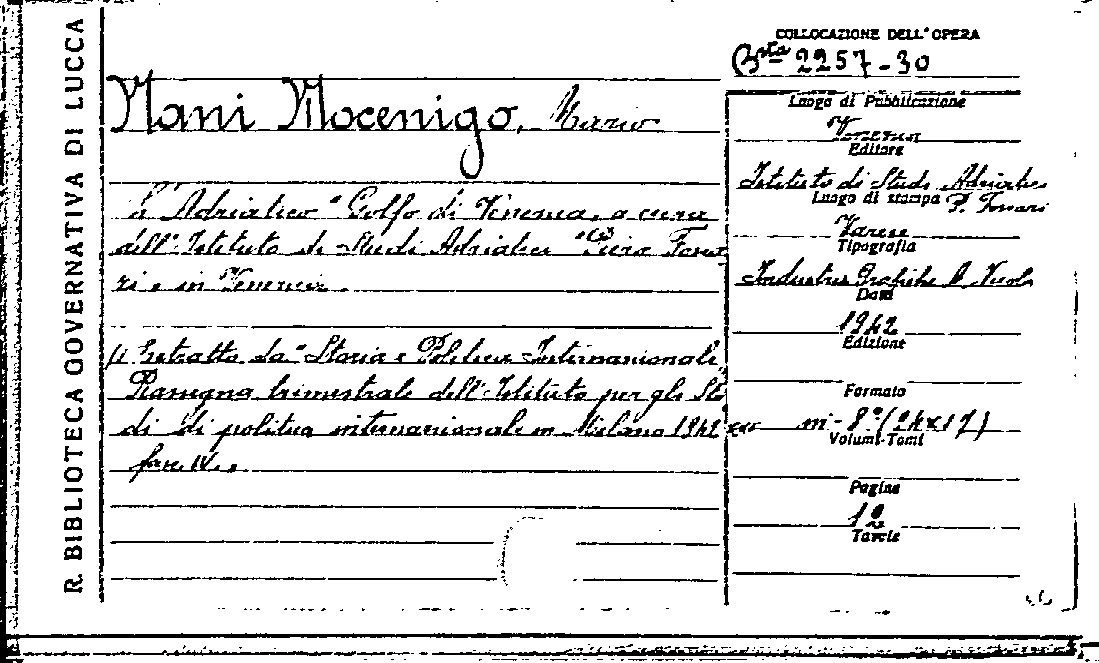 R. BIBLIOTECA GOVERNATIVA DI LUCCA
COLLOCAZIONE DELL'OPERA
Bsta 2257-30
Nani Mocenigo, Mario
L'Adriatico "Golfo di Venezia, a cura
dell'Istituto di Studi Adriatici "Piero Fosca
ri, in Venezia.
Estratto da "Storia e Politica Internazionale,
Rassegna trimestrale dell'Istituto per gli Stu
di di politica internazionale in Milano 1942 xx
fasc. IV.
Luogo di Pubblicazione
Venezia
Editore
Istituto di Studi Adriatici
P. Foscari
Luogo di stampa
Varese
Tipografia
Industrie Grafiche A. Nicola
Data
1942
Edizione
Formato
in-8° (24x17)
Volumi-Tomi
Pagine
12
Tavole